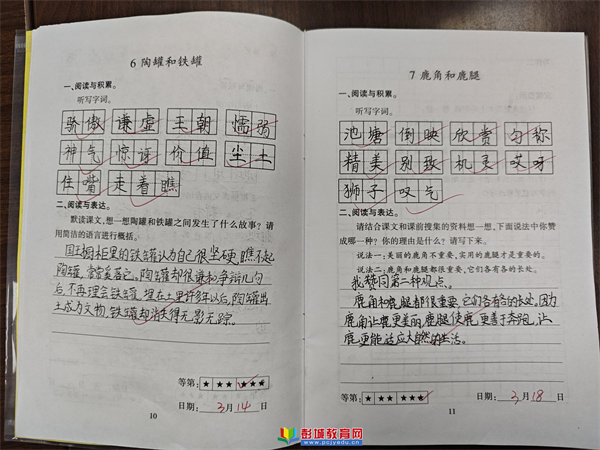 6 陶罐和铁罐
一、阅读与积累。
听写字词。
骄傲 谦虚 王朝 懦弱
神气 惊讶 价值 尘土
住嘴 走着瞧
二、阅读与表达。
默读课文,想一想陶罐和铁罐之间发生了什么故事?请
用简洁的语言进行概括。
国王橱柜里的铁罐认为自己很坚硬,瞧不起
陶罐,常常奚落它。陶罐却很谦和,争辩几句
后,不再理会铁罐。埋在土里许多年以后,陶罐出
土成为文物,铁罐却消失得无影无踪。
等第: ★★★ ★★★
日期: 3月14日
10
7 鹿角和鹿腿
一、阅读与积累。
听写字词。
池塘 倒映 欣赏 匀称
精美 别致 机灵 哎呀
狮子 叹气
二、阅读与表达。
请结合课文和课前搜集的资料想一想,下面说法中你赞
成哪一种?你的理由是什么?请写下来。
说法一:美丽的鹿角不重要,实用的鹿腿才是重要的。
说法二:鹿角和鹿腿都很重要,它们各有各的长处。
我赞同第二种观点。
鹿角和鹿腿都很重要,它们各有各的长处,因为
鹿角让鹿更美丽,鹿腿使鹿更善于奔跑,让
鹿更能适应大自然的生活。
等第: ★★★ ★★★
日期: 3月18日
11
彭城教育网
www.pcjyedu.com